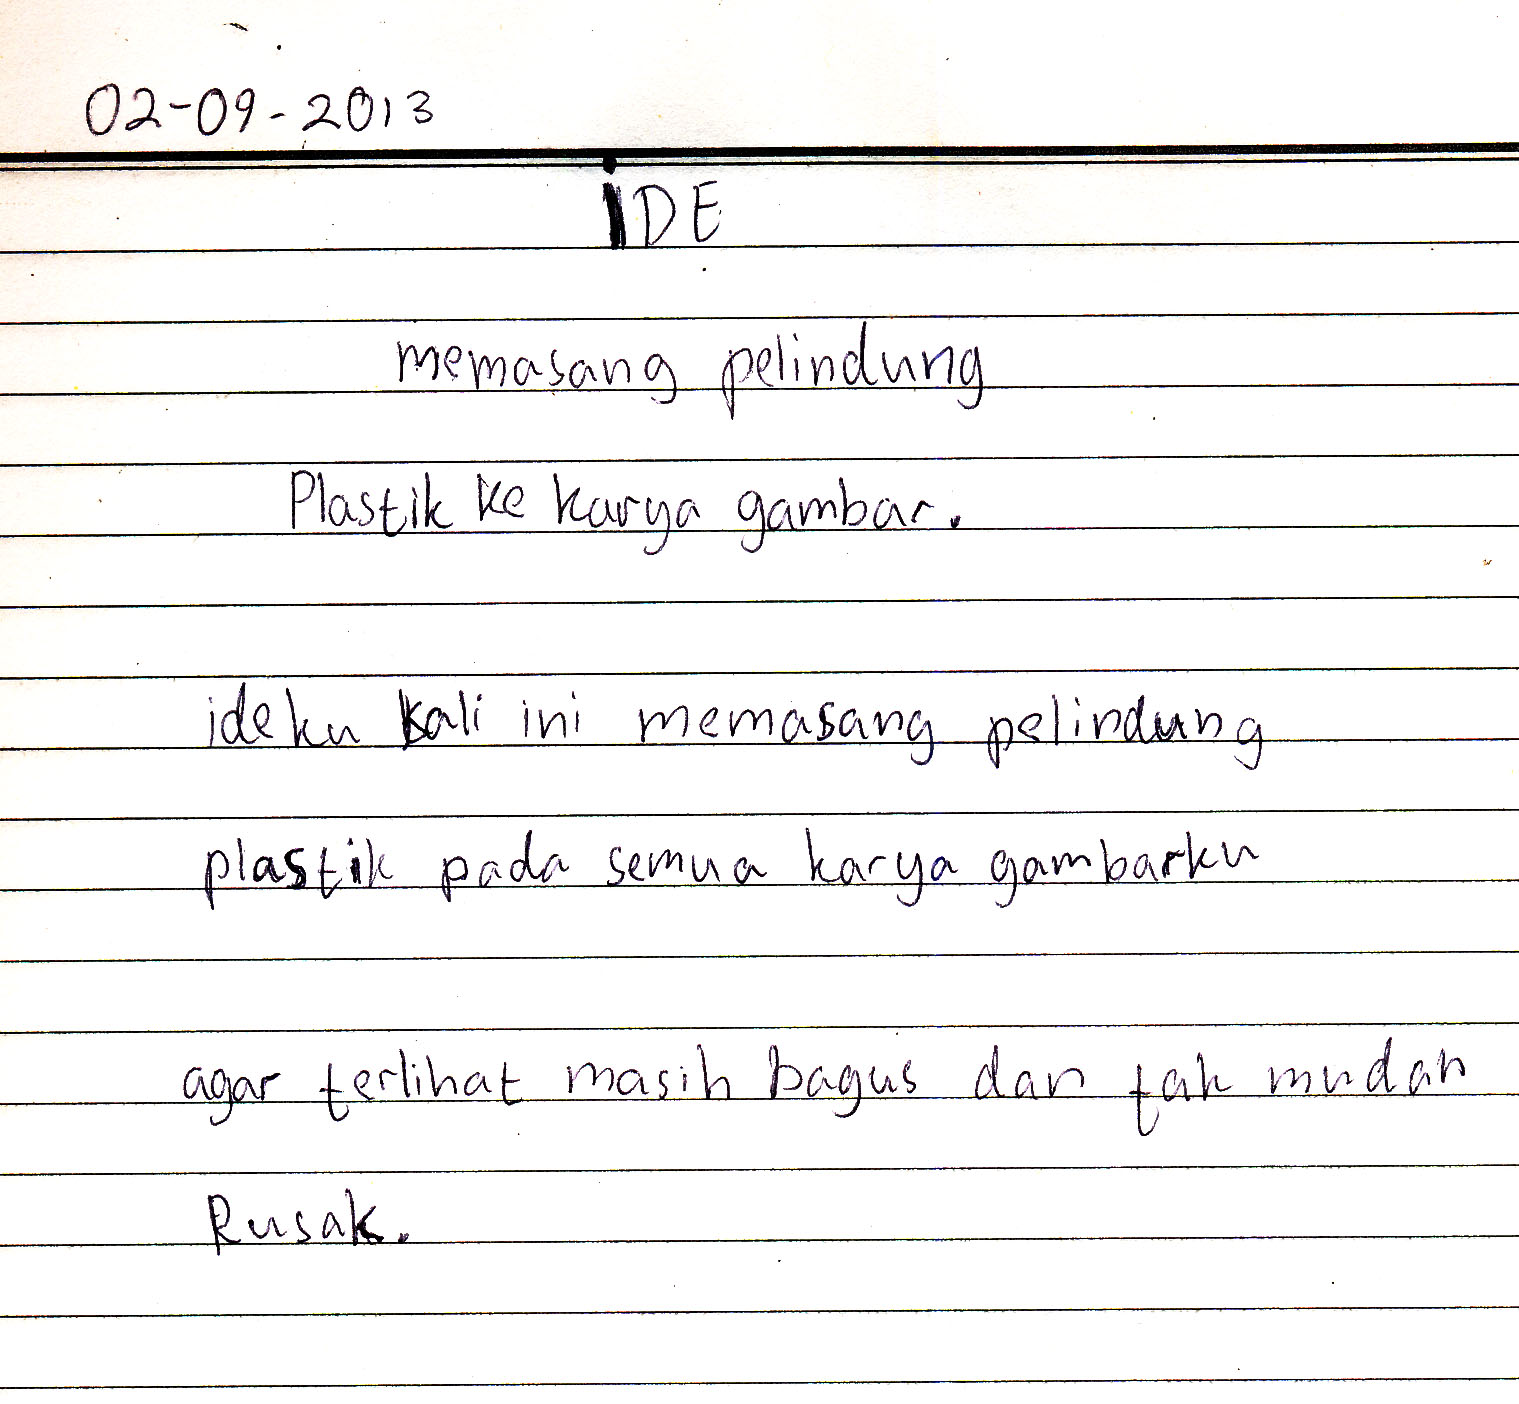 02-09-2013
iDE
memasang pelindung
Plastik ke karya gambar.
ideku kali ini memasang pelindung
plastik pada semua karya gambarku
agar terlihat masih bagus dan tak mudah
Rusak.